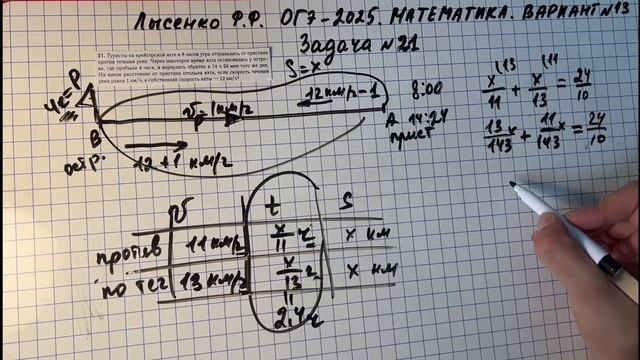 Лысенко Ф.Ф. ОГЭ-2025. МАТЕМАТИКА. ВАРИАНТ №13
Задача №21
21. Туристы на крейсерской яхте в 8 часов утра отправились от пристани
против течения реки. Через некоторое время яхта остановилась у остро-
ва, где пробыла 4 часа, и вернулась обратно в 14 ч 24 мин того же дня.
На какое расстояние от пристани отплыла яхта, если скорость течения
реки равна 1 км/ч, а собственная скорость яхты — 12 км/ч?
S=x
P
4ч
В
остр.
v_р=1км/ч
12км/ч-1
12+1 км/ч
8:00
А 14:24
прист
x/11 (13 + x/13 (11 = 24/10
13x/143 + 11x/143 = 24/10
v t S
против 11 км/ч x/11 ч x км
по теч 13 км/ч x/13 ч x км
||
2,4ч